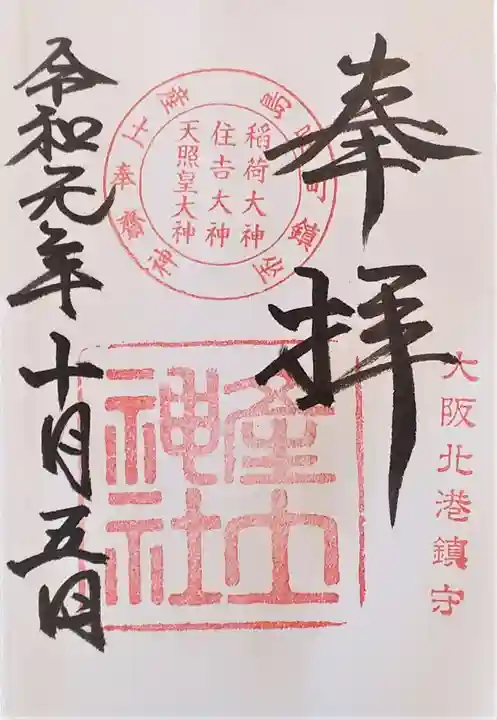 奉拝
大阪北港鎮守
島屋町鎮守
産土奉齋神
稲荷大神
住吉大神
天照皇大神
産土
神社
令和元年十月五日